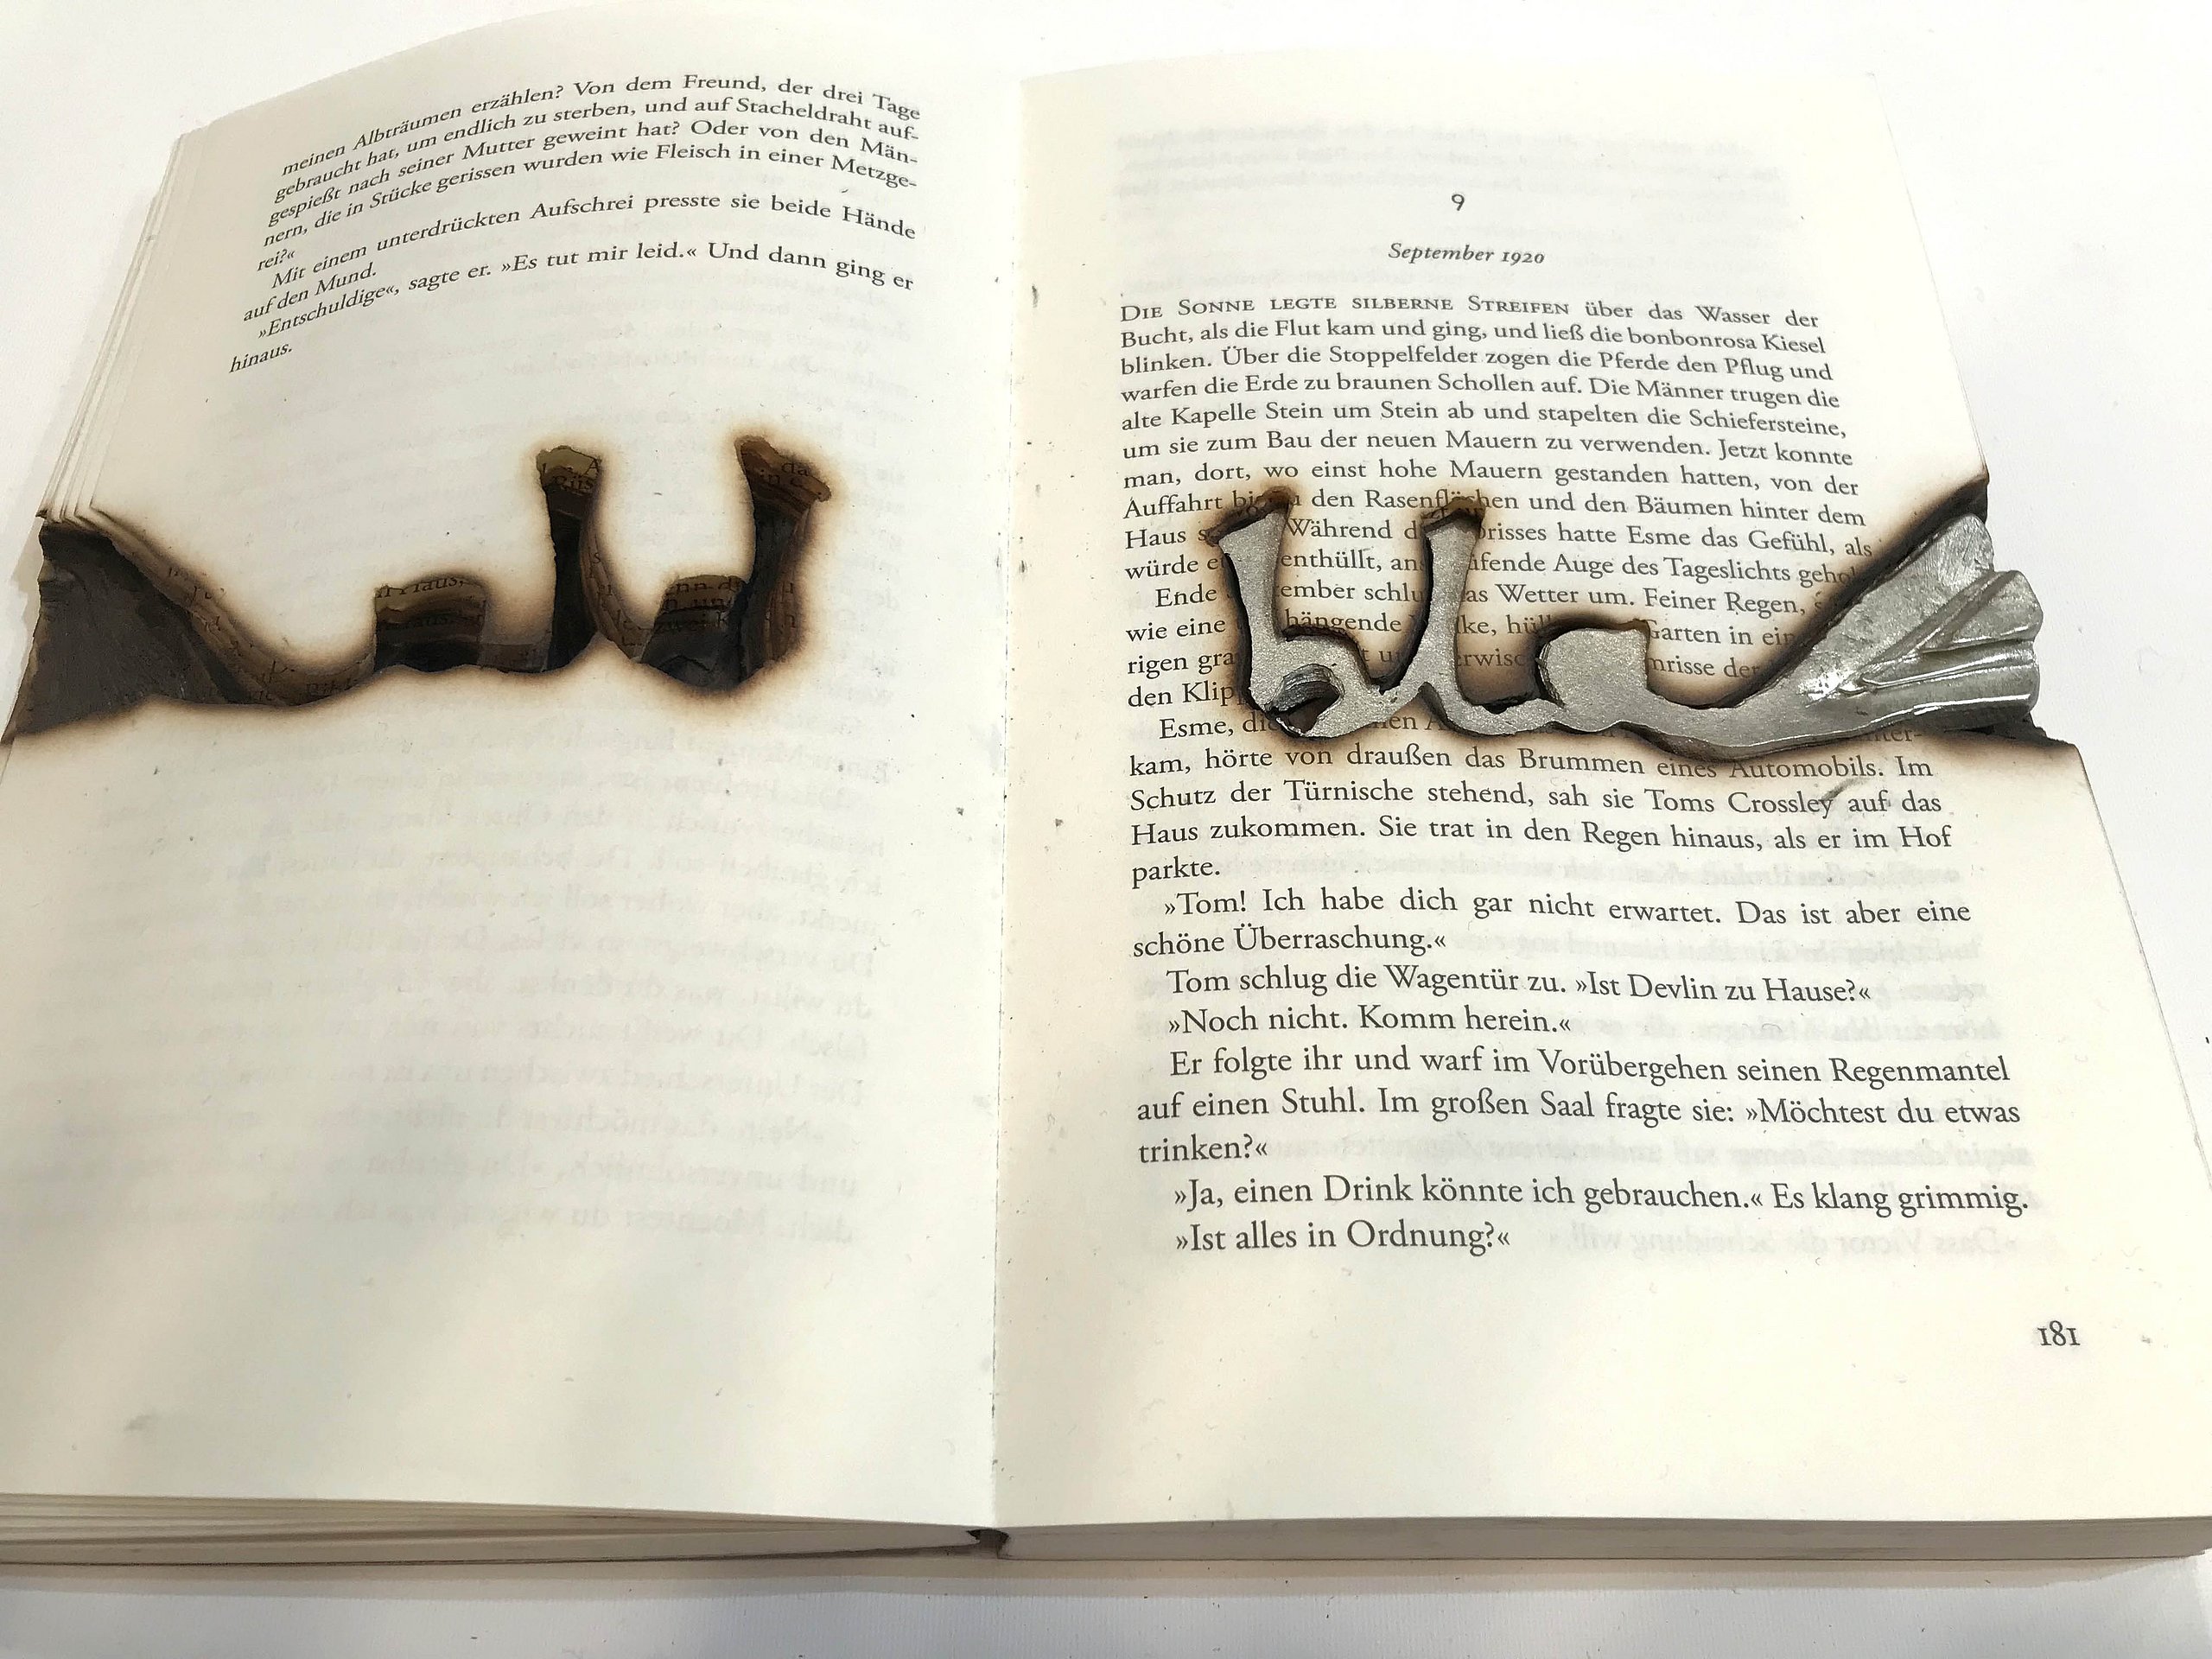 meinen Albträumen erzählen? Von dem Freund, der drei Tage
gebraucht hat, um endlich zu sterben, und auf Stacheldraht auf-
gespießt nach seiner Mutter geweint hat? Oder von den Män-
nern, die in Stücke gerissen wurden wie Fleisch in einer Metzge-
rei?«
Mit einem unterdrückten Aufschrei presste sie beide Hände
auf den Mund.
»Entschuldige«, sagte er. »Es tut mir leid.« Und dann ging er
hinaus.
9
September 1920
DIE SONNE LEGTE SILBERNE STREIFEN über das Wasser der
Bucht, als die Flut kam und ging, und ließ die bonbonrosa Kiesel
blinken. Über die Stoppelfelder zogen die Pferde den Pflug und
warfen die Erde zu braunen Schollen auf. Die Männer trugen die
alte Kapelle Stein um Stein ab und stapelten die Schiefersteine,
um sie zum Bau der neuen Mauern zu verwenden. Jetzt konnte
man, dort, wo einst hohe Mauern gestanden hatten, von der
Auffahrt den Rasenflächen und den Bäumen hinter dem
Haus Während hatte Esme das Gefühl, als
würde enthüllt, Auge des Tageslichts
Ende das Wetter um. Feiner Regen,
wie eine hängende Garten in
rigen
den
Esme,
kam, hörte von draußen das Brummen eines Automobils. Im
Schutz der Türnische stehend, sah sie Toms Crossley auf das
Haus zukommen. Sie trat in den Regen hinaus, als er im Hof
parkte.
»Tom! Ich habe dich gar nicht erwartet. Das ist aber eine
schöne Überraschung.«
Tom schlug die Wagentür zu. »Ist Devlin zu Hause?«
»Noch nicht. Komm herein.«
Er folgte ihr und warf im Vorübergehen seinen Regenmantel
auf einen Stuhl. Im großen Saal fragte sie: »Möchtest du etwas
trinken?«
»Ja, einen Drink könnte ich gebrauchen.« Es klang grimmig.
»Ist alles in Ordnung?«
181